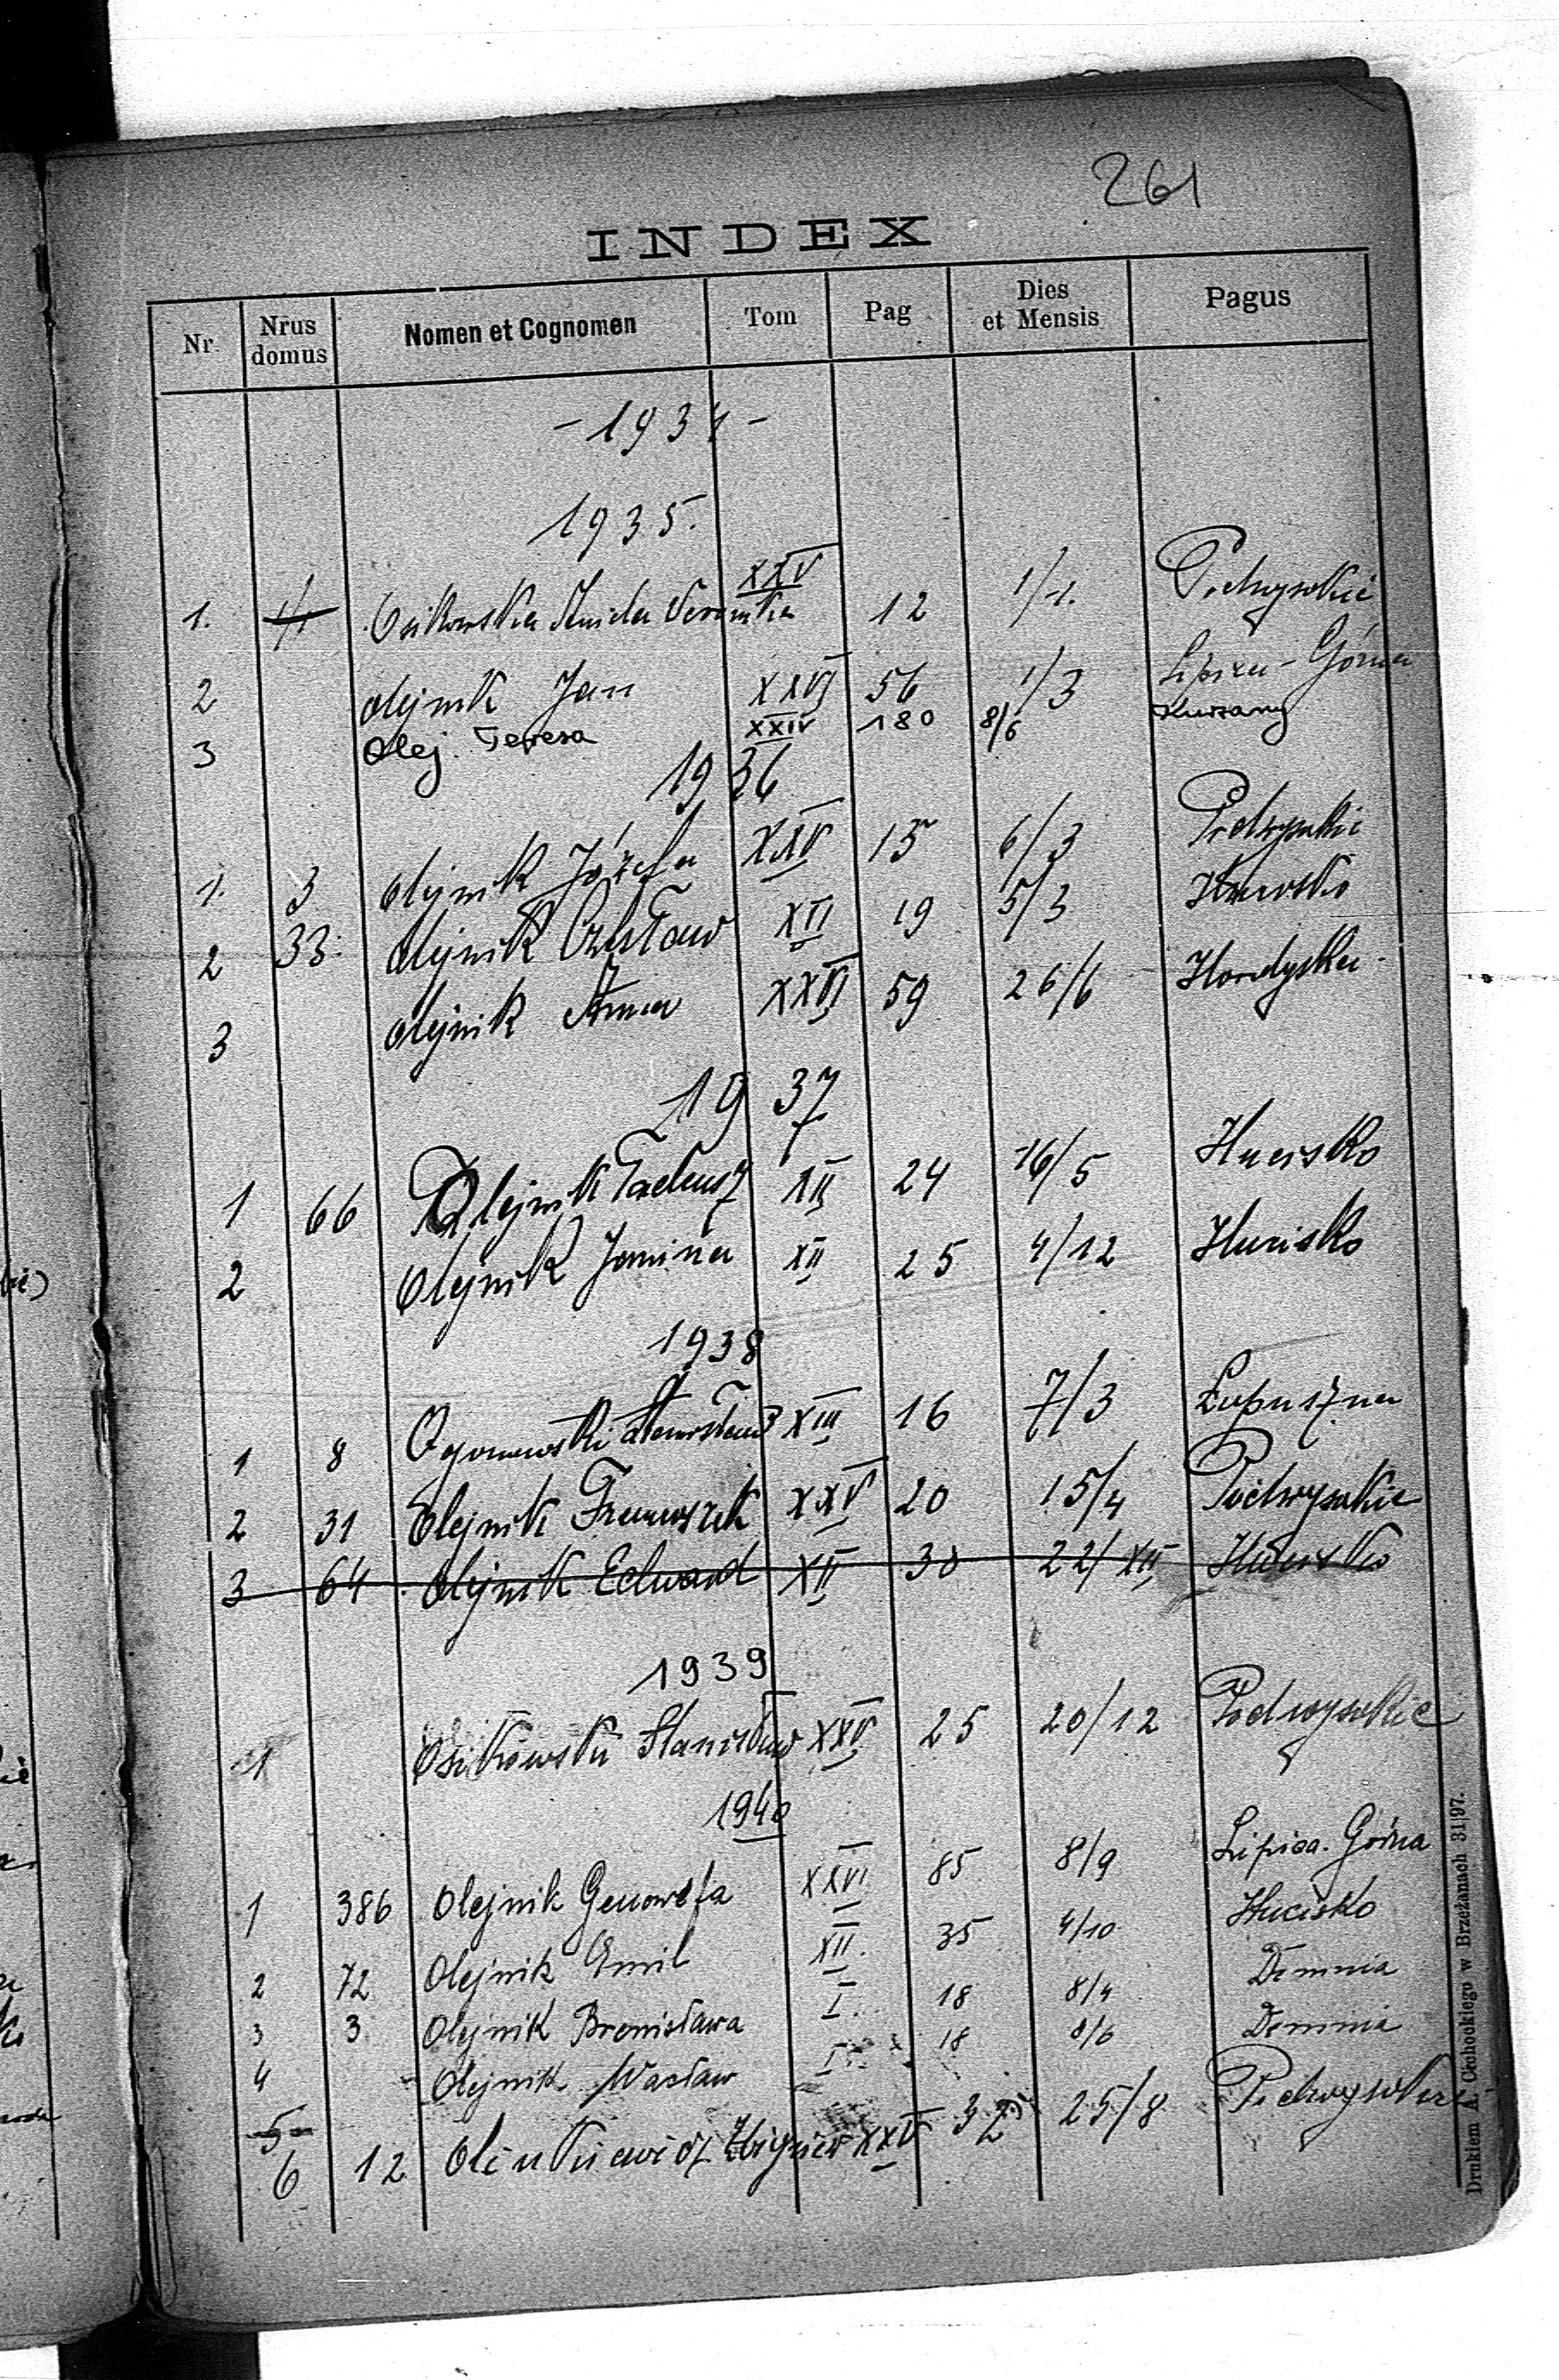 261
INDEX
Nr. Nrus domus Nomen et Cognomen Tom Pag Dies et Mensis Pagus
- 1934 -
1935.
1. Osikowska Weronika XXV 12 1/1. Podwysokie
2 Olejnik Jan XXVI 56 1/3 Lipica-Górna
3 Olej. Teresa XXIV 180 8/6 Kurzany
1936
1. 3 Olejnik Józefa XXV 15 6/3 Podwysokie
2 33. Olejnik Czesław XII 19 5/3 Hucisko
3 Olejnik Anna XXVI 59 26/6 Hondyska
1937
1 66 Olejnik Tadeusz XII 24 16/5 Hucisko
2 Olejnik Janina XII 25 4/12 Hucisko
1938
1 8 Ogonowski Stanisław XIII 16 7/3 Łopuszna
2 31 Olejnik Franciszek XXV 20 15/4 Podwysokie
3 64 Olejnik Edward XII 30 22/XII Hucisko
1939
1 Osikowski Stanisław XXV 25 20/12 Podwysokie
1940
1 386 Olejnik Genowefa XXVI 85 8/9 Lipica. Górna
2 72 Olejnik Emil XII. 35 4/10 Hucisko
3 3 Olejnik Bronisława I. 18 8/4 Demnia
4 Olejnik Wacław I 18 8/6 Demnia
5
6 12 Olinkiewicz Zbigniew XXV 32 25/8 Podwysokie
Drukiem A. Cichockiego w Brzeżanach 31|97.